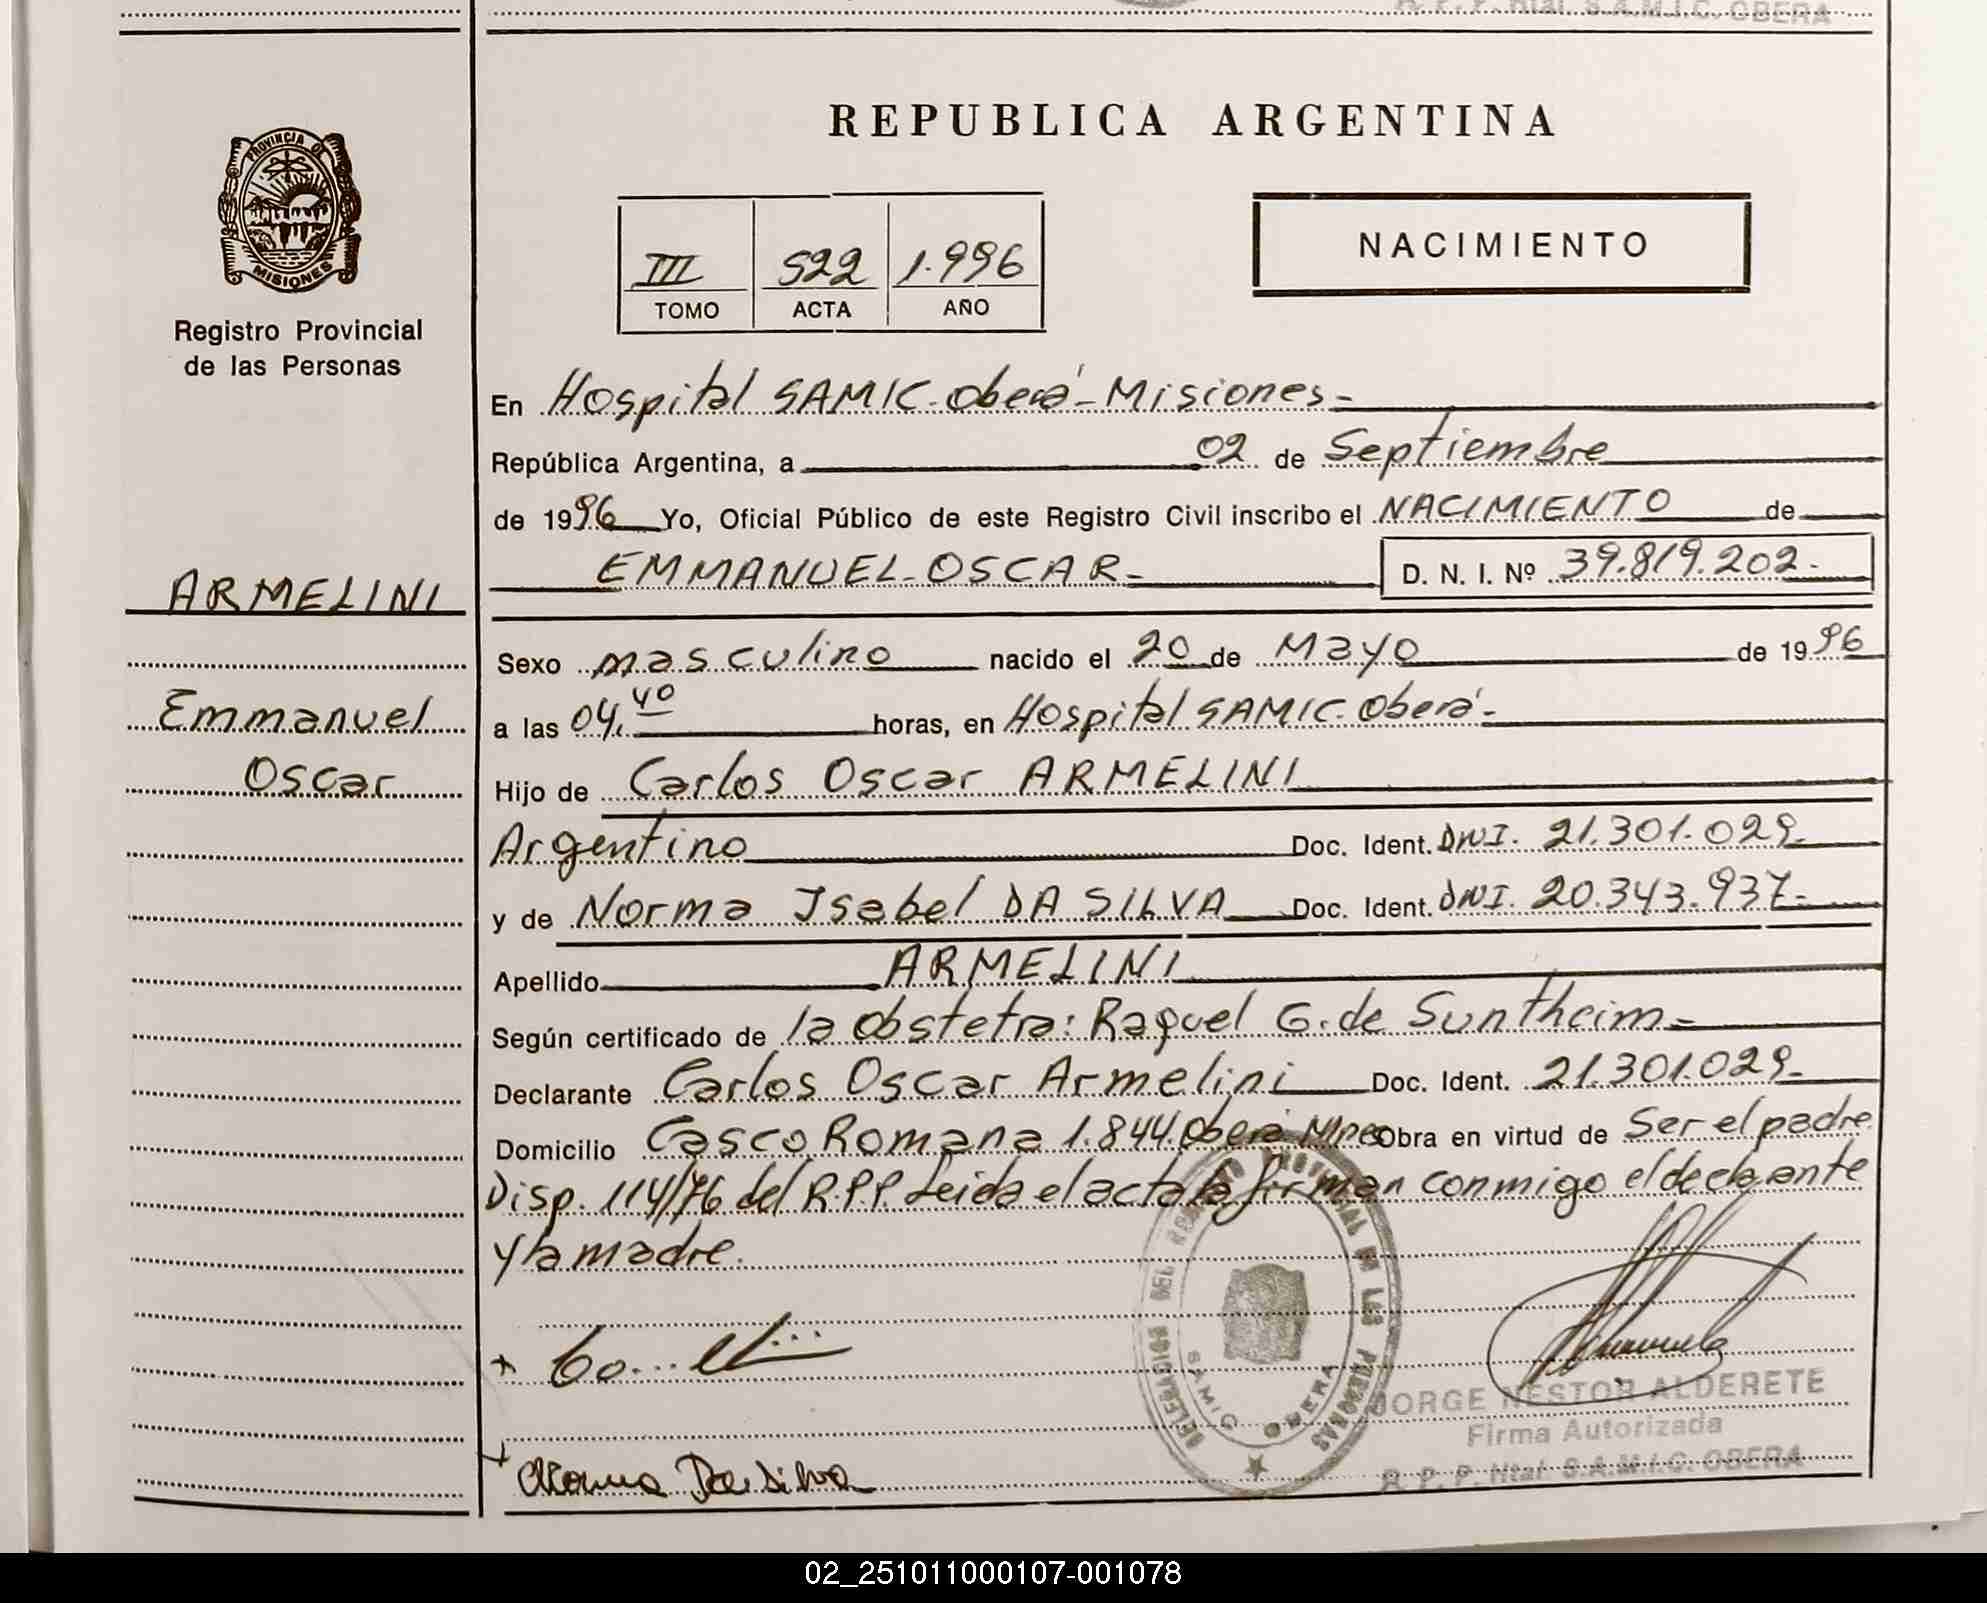 R. P. P. Htal. S.A.M.I.C. OBERA
PROVINCIA DE
MISIONES
Registro Provincial
de las Personas
ARMELINI
Emmanuel
Oscar
REPUBLICA ARGENTINA
III 522 1.996
TOMO ACTA AÑO
NACIMIENTO
En Hospital SAMIC-Oberá-Misiones-
República Argentina, a 02 de Septiembre
de 1996 Yo, Oficial Público de este Registro Civil inscribo el NACIMIENTO de
EMMANUEL-OSCAR- D. N. I. Nº 39.819.202-
Sexo masculino nacido el 20 de Mayo de 1996
a las 04.40 horas, en Hospital SAMIC-Oberá-
Hijo de Carlos Oscar ARMELINI
Argentino Doc. Ident. DNI. 21.301.029-
y de Norma Isabel DA SILVA Doc. Ident. DNI. 20.343.937-
Apellido ARMELINI
Según certificado de la obstetra: Raquel G. de Suntheim-
Declarante Carlos Oscar Armelini Doc. Ident. 21.301.029-
Domicilio Casco Romana 1.844. Oberá Mnes Obra en virtud de Ser el padre
Disp. 114/76 del R.P.P. Leida el acta la firman conmigo el declarante
y la madre.
DELEGACION DEL REGISTRO PROVINCIAL DE LAS PERSONAS
SAMIC OBERA
JORGE NESTOR ALDERETE
Firma Autorizada
R. P. P. Htal. S.A.M.I.C. OBERA
Norma Da Silva
02_251011000107-001078